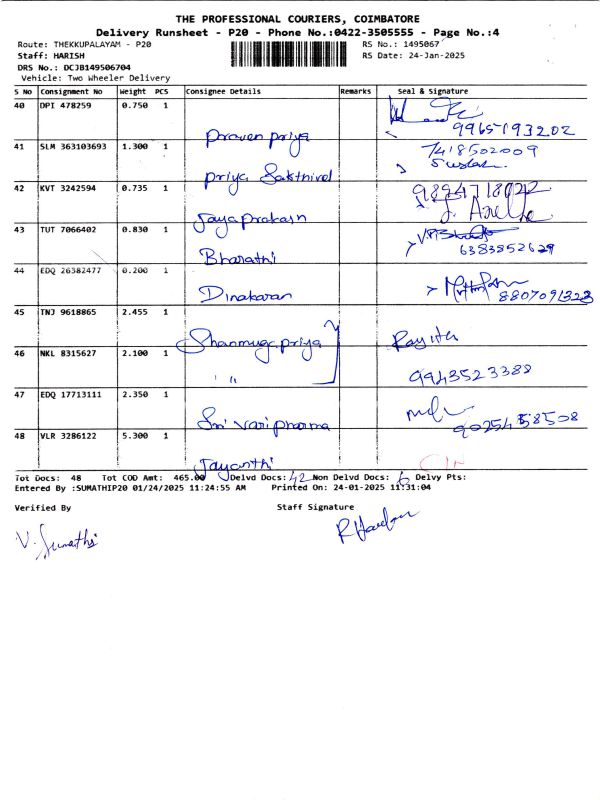 THE PROFESSIONAL COURIERS, COIMBATORE
Delivery Runsheet - P20 - Phone No.:0422-3505555 - Page No.:4
Route: THEKKUPALAYAM - P20 RS No.: 1495067
Staff: HARISH RS Date: 24-Jan-2025
DRS No.: DCJB149506704
Vehicle: Two Wheeler Delivery
S No Consignment No Weight PCS Consignee Details Remarks Seal & Signature
40 DPI 478259 0.750 1
Praven priya 9965793202
41 SLM 363103693 1.300 1 7418502009
Priya Sakthivel
42 KVT 3242594 0.735 1 9894718022
Jaya prakash
43 TUT 7066402 0.830 1
Bharathi 6383852629
44 EDQ 26382477 0.200 1
Dinakaran 8807091323
45 TNJ 9618865 2.455 1
Shanmuga priya
46 NKL 8315627 2.100 1
" 9943523388
47 EDQ 17713111 2.350 1
Sri Vari pharma 9025458508
48 VLR 3286122 5.300 1
Jayanthi
Tot Docs: 48 Tot COD Amt: 465.00 Delvd Docs: 42 Non Delvd Docs: 6 Delvy Pts:
Entered By :SUMATHIP20 01/24/2025 11:24:55 AM Printed On: 24-01-2025 11:31:04
Verified By Staff Signature
V. Sumathi